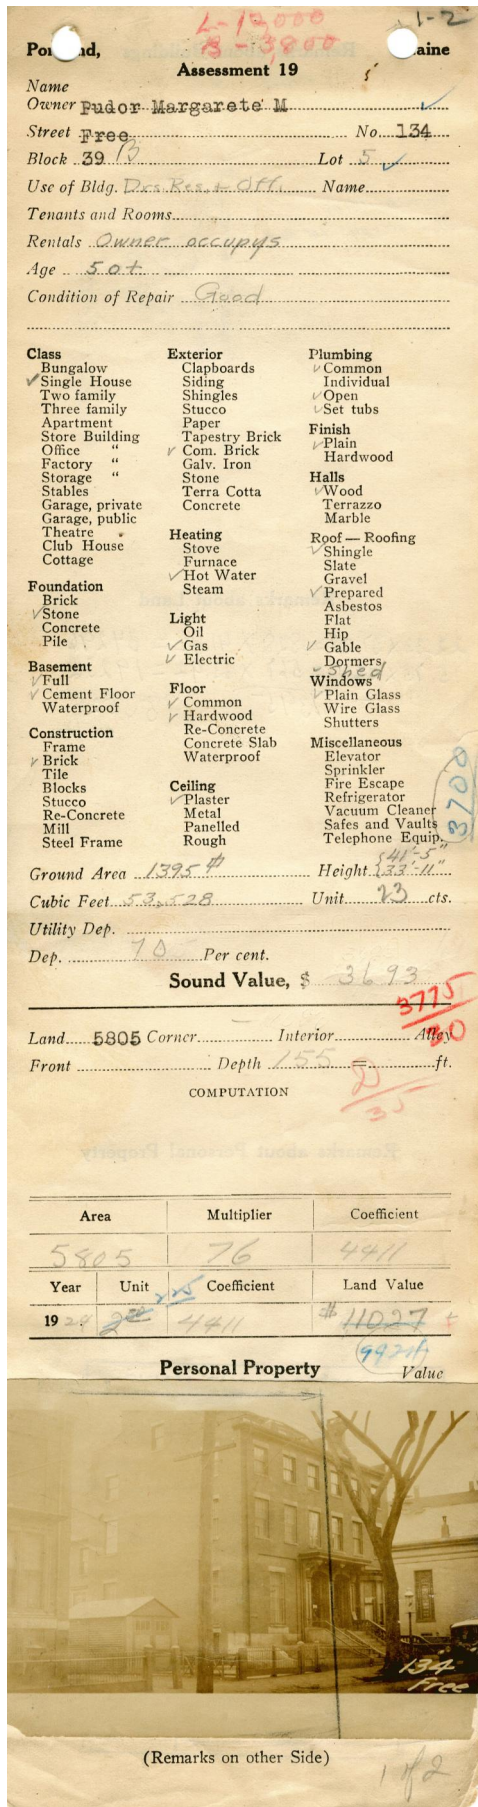 L-12,000
B-3,800
1-2
Portland, Maine
Assessment 19
Name
Owner Pudor Margarete M
Street Free No. 134
Block 39 B Lot 5
Use of Bldg. Drs. Res. + Off. Name
Tenants and Rooms
Rentals Owner occupys
Age 50+
Condition of Repair Good
Class
Bungalow
✓ Single House
Two family
Three family
Apartment
Store Building
Office "
Factory "
Storage "
Stables
Garage, private
Garage, public
Theatre
Club House
Cottage
Foundation
Brick
✓ Stone
Concrete
Pile
Basement
✓ Full
✓ Cement Floor
Waterproof
Construction
Frame
✓ Brick
Tile
Blocks
Stucco
Re-Concrete
Mill
Steel Frame
Exterior
Clapboards
Siding
Shingles
Stucco
Paper
Tapestry Brick
✓ Com. Brick
Galv. Iron
Stone
Terra Cotta
Concrete
Heating
Stove
Furnace
✓ Hot Water
Steam
Light
Oil
✓ Gas
✓ Electric
Floor
✓ Common
✓ Hardwood
Re-Concrete
Concrete Slab
Waterproof
Ceiling
✓ Plaster
Metal
Panelled
Rough
Plumbing
✓ Common
Individual
✓ Open
✓ Set tubs
Finish
✓ Plain
Hardwood
Halls
✓ Wood
Terrazzo
Marble
Roof — Roofing
✓ Shingle
Slate
Gravel
✓ Prepared
Asbestos
Flat
Hip
✓ Gable
Dormers
Shed
Windows
✓ Plain Glass
Wire Glass
Shutters
Miscellaneous
Elevator
Sprinkler
Fire Escape
Refrigerator
Vacuum Cleaner
Safes and Vaults
Telephone Equip.
3700
Ground Area 1395 Height 41'-5"
33'-11"
Cubic Feet 53,528 Unit 23 cts.
Utility Dep.
Dep. 70 Per cent.
Sound Value, $ 3693
3775
30
Land 5805 Corner Interior Alley
Front Depth 155 ft.
D
35
COMPUTATION
Area Multiplier Coefficient
5805 76 4411
Year Unit Coefficient Land Value
225
1924 4411 $11027
9924
Personal Property Value
134
Free
(Remarks on other Side)
1 of 2